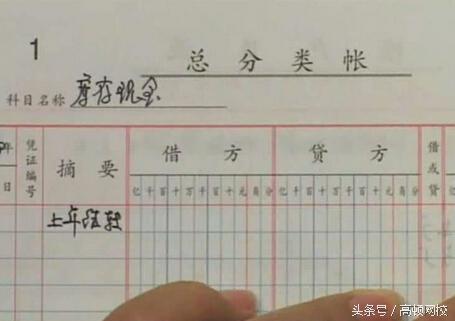 1
总分类帐
科目名称 库存现金
年 凭证编号 摘要 借方 贷方 借或贷
日 亿千百十万千百十元角分 亿千百十万千百十元角分
上年结转
头条号／高顿网校